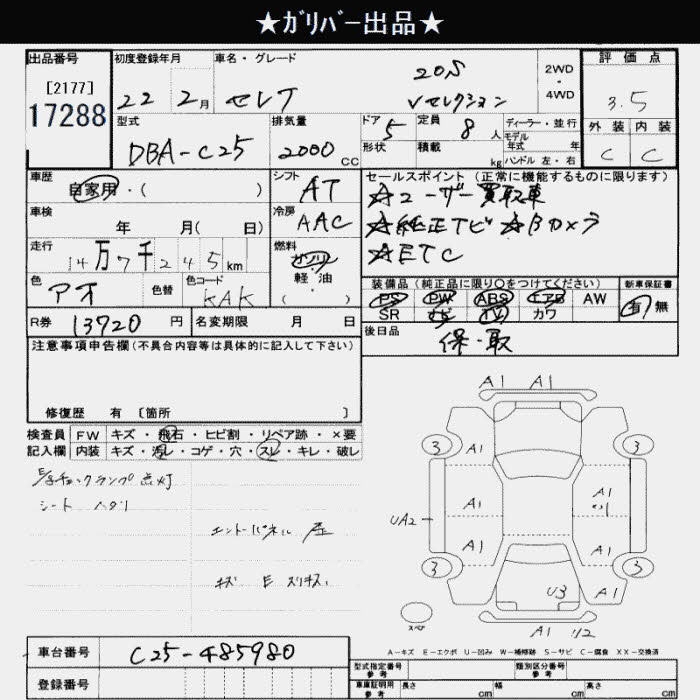 ★ｶﾞﾘﾊﾞｰ出品★
出品番号 初度登録年月 車名・グレード 評価点
[2177] 20S 2WD
・
17288 22 2月 セレナ Vセレクション 4WD 3.5
型式 排気量 ドア 定員 ディーラー・並行 外装 内装
DBA-C25 2000CC 5 8人 モデル年式 年 C C
形状 積載 kg ハンドル 左・右
車歴 シフト セールスポイント (正常に機能するものに限ります)
自家用・( ) AT ☆ユーザー買取車
車検 冷房 ☆純正TVナビ ☆Bカメラ
年 月( 日) AAC ☆ETC
走行 燃料
14万7千245km ガソリン
軽・油
( )
色 色替 色コード 装備品 (純正品に限り○をつけてください) 新車保証書
アオ KAK PS PW ABS エアB AW 有 無
SR ナビ TV カワ
R券 13720円 名変期限 月 日 後日品
保・取
注意事項申告欄(不具合内容等は具体的に記入して下さい)
修復歴 有 [箇所 ]
A1 A1
検査員 FW キズ・飛石・ヒビ割・リペア跡・×要
記入欄 内装 キズ・汚レ・コゲ・穴・スレ・キレ・破レ
3 A1 3
チェックランプ点灯
シート ヘタリ
A1 A1
UA2
A1 A1
3 3
U3 A1
スペア
A1 U2
A-キズ E-エクボ U-凹み W-補修跡 S-サビ C-腐食 XX-交換済
車台番号 C25-485980
型式指定番号 参考 類別区分番号 参考
登録番号 車庫証明用 参考 長さ cm 幅 cm 高さ cm